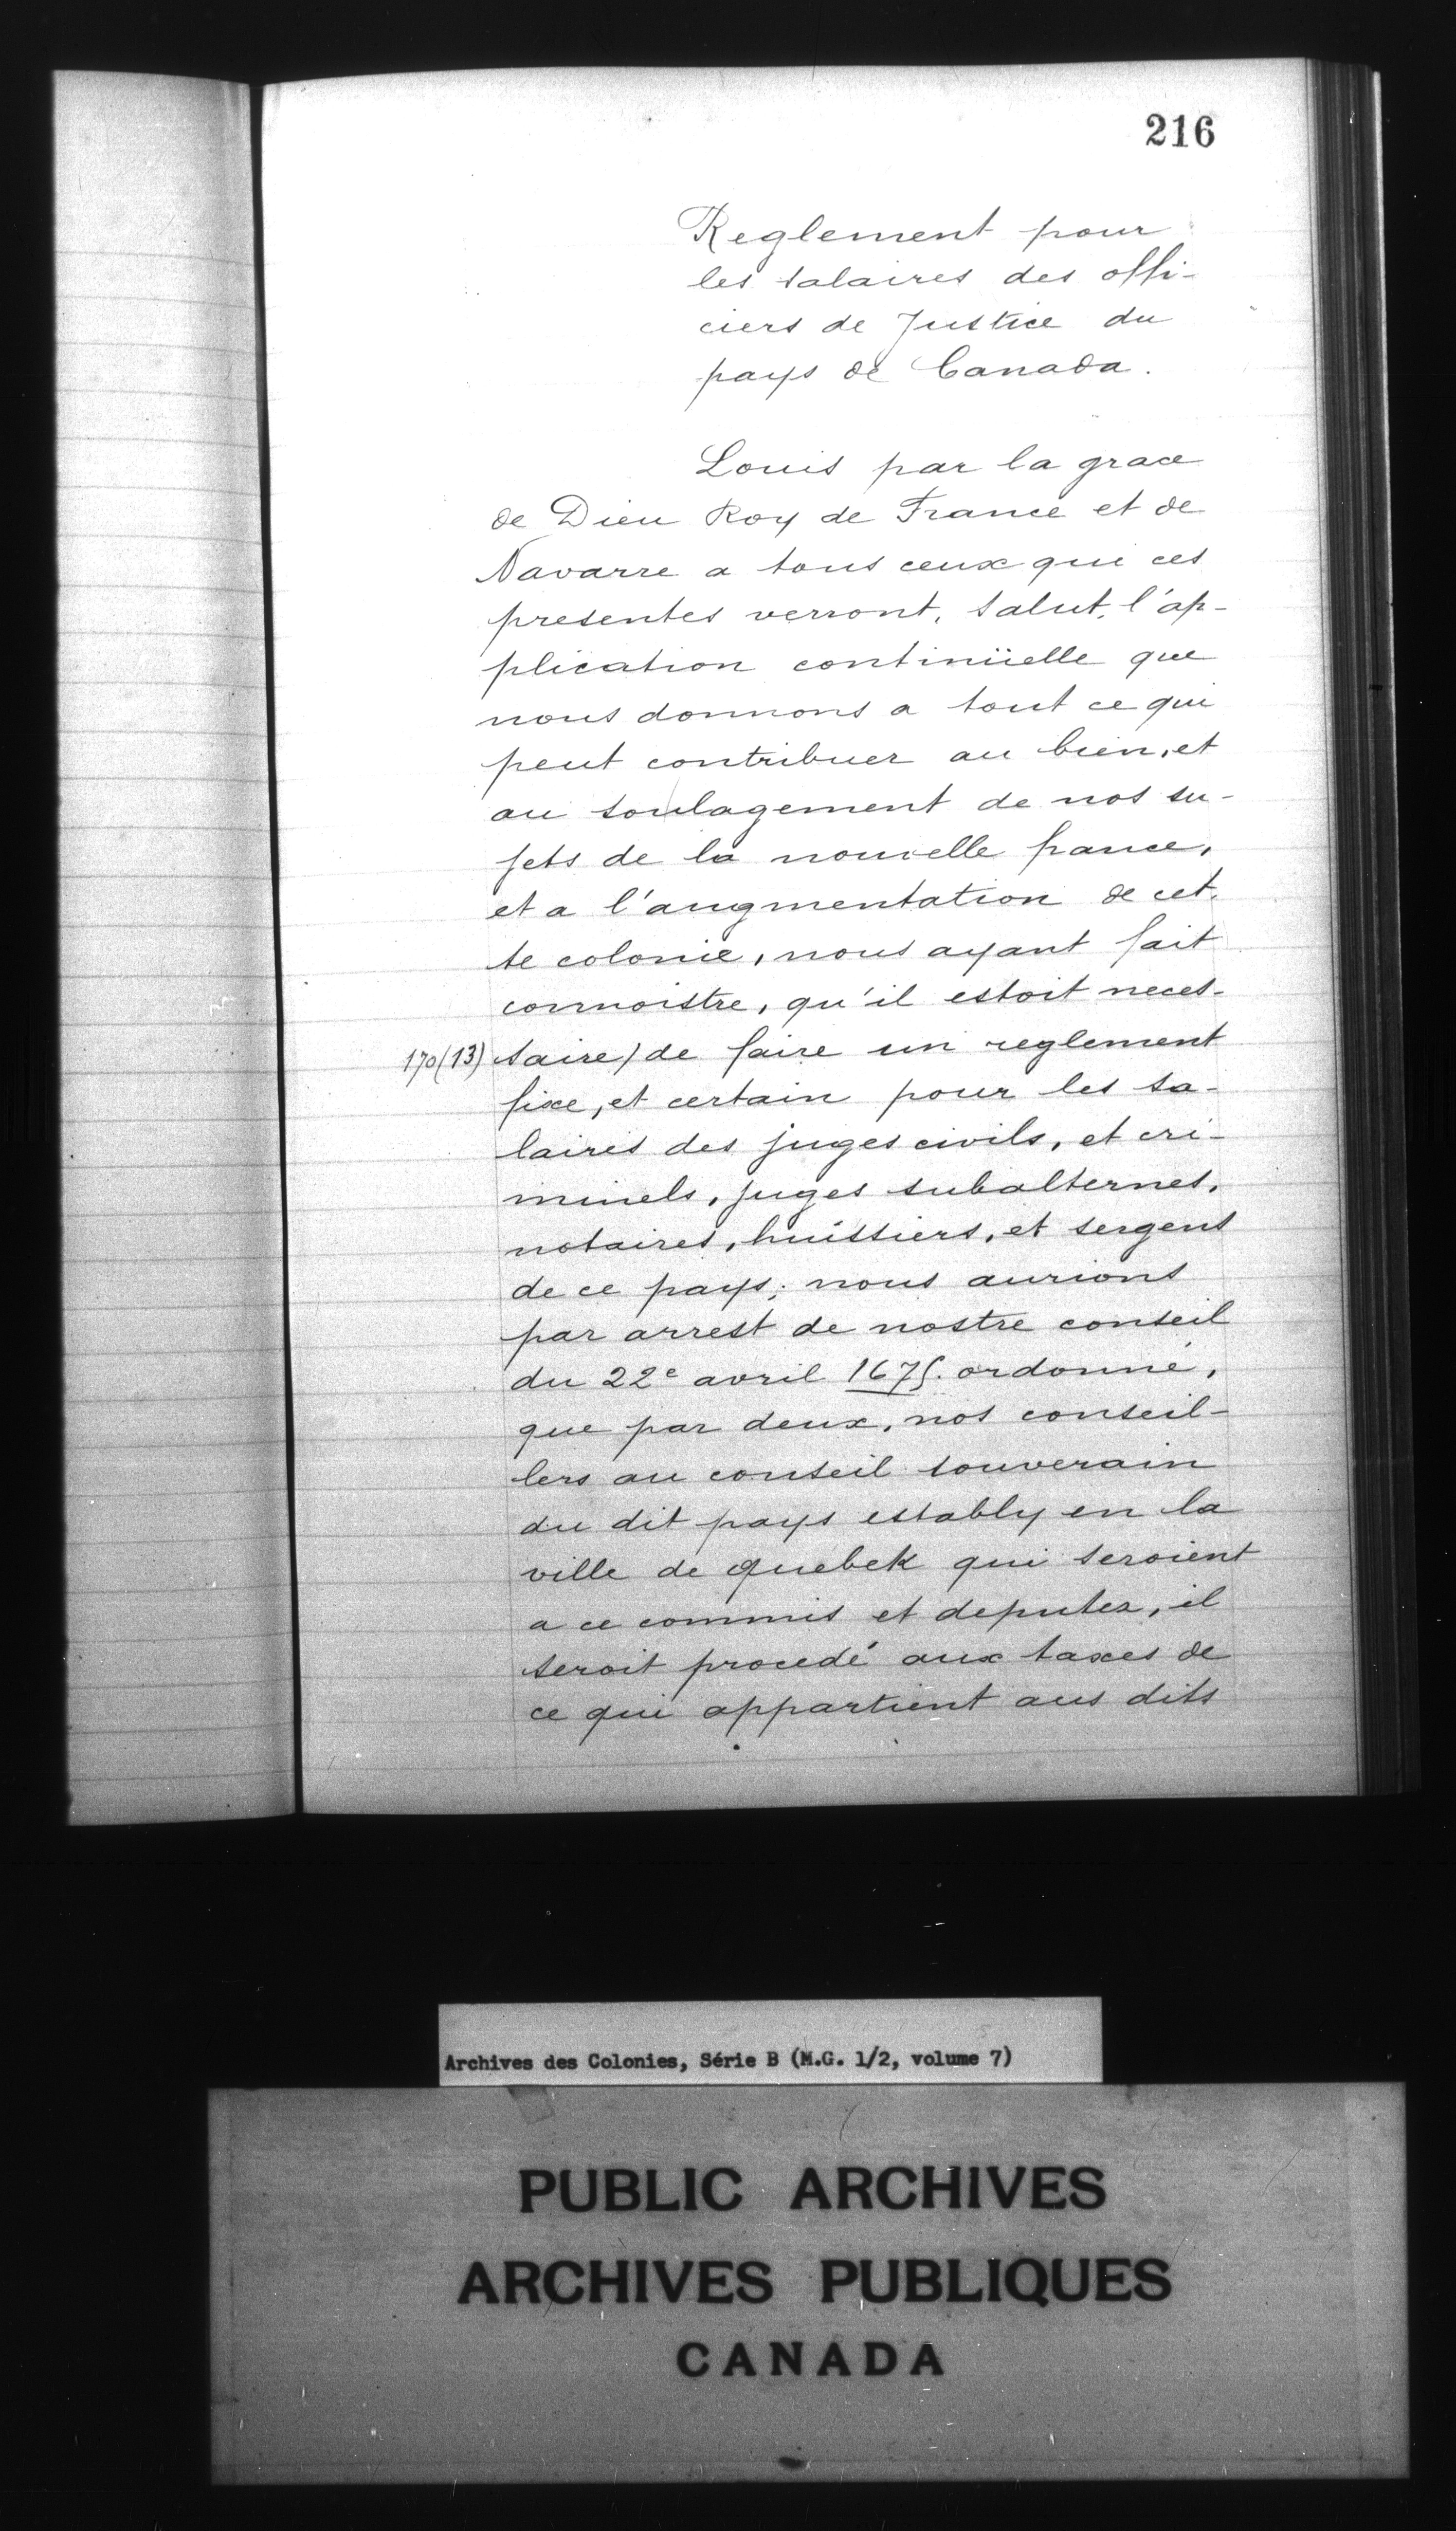 216
Reglement pour
les salaires des offi-
ciers de Justice du
pays de Canada.
Louis par la grace
de Dieu Roy de France et de
Navarre a tous ceux qui ces
presentes verront, salut, l'ap-
plication continüelle que
nous donnons a tout ce qui
peut contribuer au bien, et
au soulagement de nos su-
jets de la nouvelle france,
et a l'augmentation de cet-
te colonie, nous ayant fait
connoistre, qu'il estoit neces-
170 (13) saire) de faire un reglement
fixe, et certain pour les sa-
laires des juges civils, et cri-
minels, juges subalternes,
notaires, huissiers, et sergens
de ce pays; nous aurions
par arrest de nostre conseil
du 22e avril 1675. ordonné,
que par deux, nos conseil-
lers au conseil souverain
du dit pays estably en la
ville de quebek qui seroient
a ce commis et deputez, il
seroit procedé aux taxes de
ce qui appartient aus dits
Archives des Colonies, Série B (M.G. 1/2, volume 7)
PUBLIC ARCHIVES
ARCHIVES PUBLIQUES
CANADA